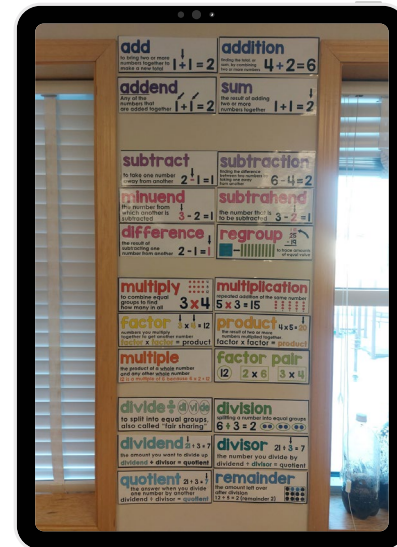 add
to bring two or more
numbers together to
make a new total
1+1=2
addition
finding the total, or
sum, by combining
two or more numbers
4+2=6
addend
Any of the
numbers that
are added together
1+1=2
sum
the result of adding
two or more
numbers together
1+1=2
subtract
to take one number
away from another
2-1=1
subtraction
finding the difference
between two numbers by
taking one away
from another
6-4=2
minuend
the number from
which another is
subtracted
3-2=1
subtrahend
the number that is
to be subtracted
3-2=1
difference
the result of
subtracting one
number from another
2-1=1
regroup
to trade amounts
of equal value
multiply
to combine equal
groups to find
how many in all
3x4
multiplication
repeated addition of the same number
5x3=15
factor
numbers you multiply
together to get another number
3x4=12
factor x factor = product
product
4x5=20
the result of two or more
numbers multiplied together
factor x factor = product
multiple
the product of a whole number
and any other whole number
12 is a multiple of 6 because 6 x 2 = 12
factor pair
12
2 x 6
3 x 4
divide
÷
divide
to split into equal groups,
also called "fair sharing"
division
splitting a number into equal groups
6÷3=2
dividend
21÷3=7
the amount you want to divide up
dividend ÷ divisor = quotient
divisor
21÷3=7
the number you divide by
dividend ÷ divisor = quotient
quotient
21÷3=7
the answer when you divide
one number by another
dividend ÷ divisor = quotient
remainder
the amount left over
after division